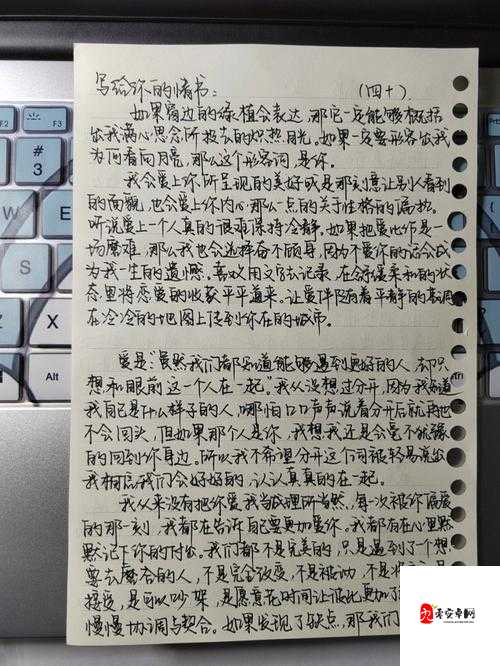 写给你的情书： （四十）
如果窗边的绿植会表达，那它一定能够概括
出我满心思念所投去的炽热目光。如果一定要形容出我
为何看向月亮，那么这个形容词，是你。
我会爱上你所呈现的美好或是那刻意让别人看到
的面貌，也会爱上你内心那么一点的关于性格的偏执。
听说爱上一个人真的很难保持冷静，如果把爱比作是一
场磨难，那么我也会选择奋不顾身，因为不爱你的话会成
为我一生的遗憾。喜欢用文字去记录，在舒缓柔和的状
态里将恋爱的收获平平道来。让爱伴随着平静的基调
在冷冷的地图上传到你在的城市。
爱是“虽然我们都知道能够遇到更好的人，却只
想和眼前这一个人在一起。”我从没想过分开，因为我知道
我自己是什么样子的人，哪怕口口声声说着分开后就再也
不会回头，但如果那个人是你，我想我还是会毫不犹豫
的回到你身边。所以我不希望分开这个词被轻易说出
我相信我们会好好的，认认真真的在一起。
我从来没有把你爱我当成理所当然，每一次被你偏爱
的那一刻，我都在告诉自己要更加爱你。我都有在心里默
默记下你的付出。我们都不是完美的，只是遇到了个想
要去磨合的人，不是完全改变，不是被动，不是
接受，是可以吵架，是愿意花时间让彼此更加了
慢慢协调与契合。如果发现了缺点，那我们
F2
F3
零安卓网